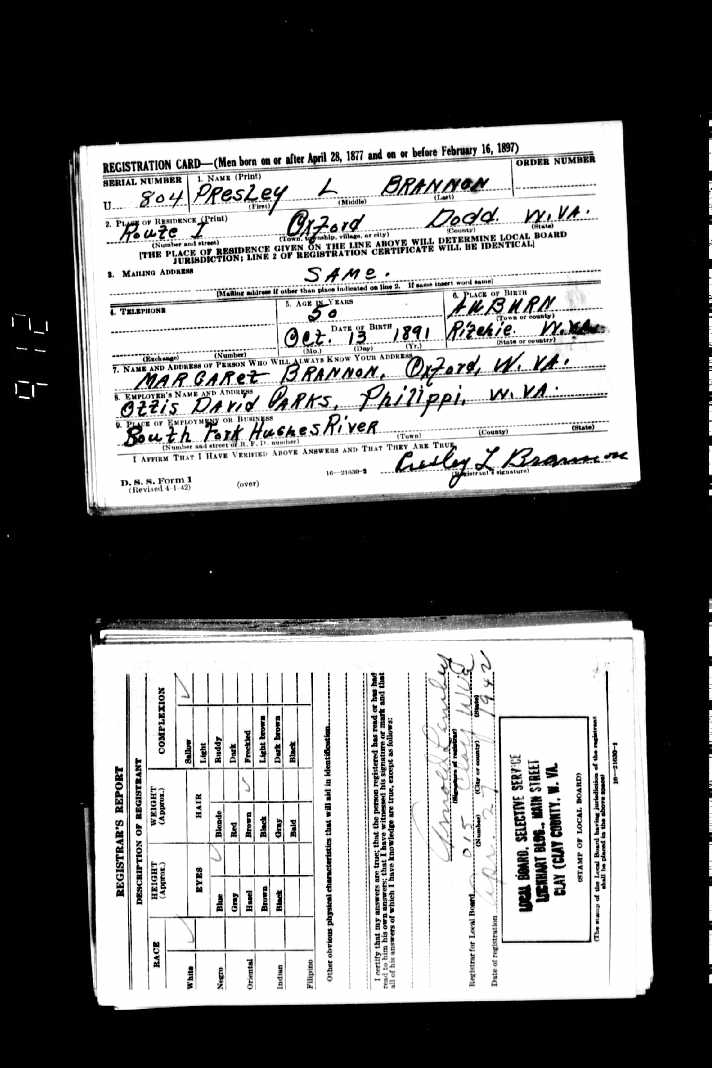 REGISTRATION CARD—(Men born on or after April 28, 1877 and on or before February 16, 1897)
SERIAL NUMBER 1. NAME (Print) ORDER NUMBER
U 804 PResLey L BRANNON
(First) (Middle) (Last)
2. PLACE OF RESIDENCE (Print)
Route I Oxford Dodd. W.VA.
(Number and street) (Town, township, village, or city) (County) (State)
[THE PLACE OF RESIDENCE GIVEN ON THE LINE ABOVE WILL DETERMINE LOCAL BOARD
JURISDICTION; LINE 2 OF REGISTRATION CERTIFICATE WILL BE IDENTICAL]
3. MAILING ADDRESS
SAMe.
[Mailing address if other than place indicated on line 2. If same insert word same]
4. TELEPHONE 5. AGE IN YEARS 6. PLACE OF BIRTH
50 AUBURN
(Town or county)
DATE OF BIRTH
Oct. 13 1891 Ritchie. W.VA.
(Exchange) (Number) (Mo.) (Day) (Yr.) (State or country)
7. NAME AND ADDRESS OF PERSON WHO WILL ALWAYS KNOW YOUR ADDRESS
MARGARet BRANNON, Oxford, W. VA.
8. EMPLOYER'S NAME AND ADDRESS
Ottis DAVID PARKS, Philippi, W. VA.
9. PLACE OF EMPLOYMENT OR BUSINESS
South Fork Hughes River
(Number and street or R. F. D. number) (Town) (County) (State)
I AFFIRM THAT I HAVE VERIFIED ABOVE ANSWERS AND THAT THEY ARE TRUE.
Presley L Brannon
D. S. S. Form 1 16—21630-2 (Registrant's signature)
(Revised 4-1-42) (over)
REGISTRAR'S REPORT
DESCRIPTION OF REGISTRANT
RACE HEIGHT (Approx.) WEIGHT (Approx.) COMPLEXION
White EYES HAIR Sallow
Light
Negro Blue Blonde Ruddy
Gray Red Dark
Oriental Hazel Brown Freckled
Brown Black Light brown
Indian Black Gray Dark brown
Bald Black
Filipino
Other obvious physical characteristics that will aid in identification
I certify that my answers are true; that the person registered has read or has had
read to him his own answers; that I have witnessed his signature or mark and that
all of his answers of which I have knowledge are true, except as follows:
(Signature of registrar)
Registrar for Local Board Clay W.Va
(Number) (City or county) (State)
Date of registration Apr. 1942
LOCAL BOARD, SELECTIVE SERVICE
LOCKHART BLDG., MAIN STREET
CLAY (CLAY COUNTY, W. VA.
(STAMP OF LOCAL BOARD)
(The stamp of the Local Board having jurisdiction of the registrant
shall be placed in the above space)
16—21630-1